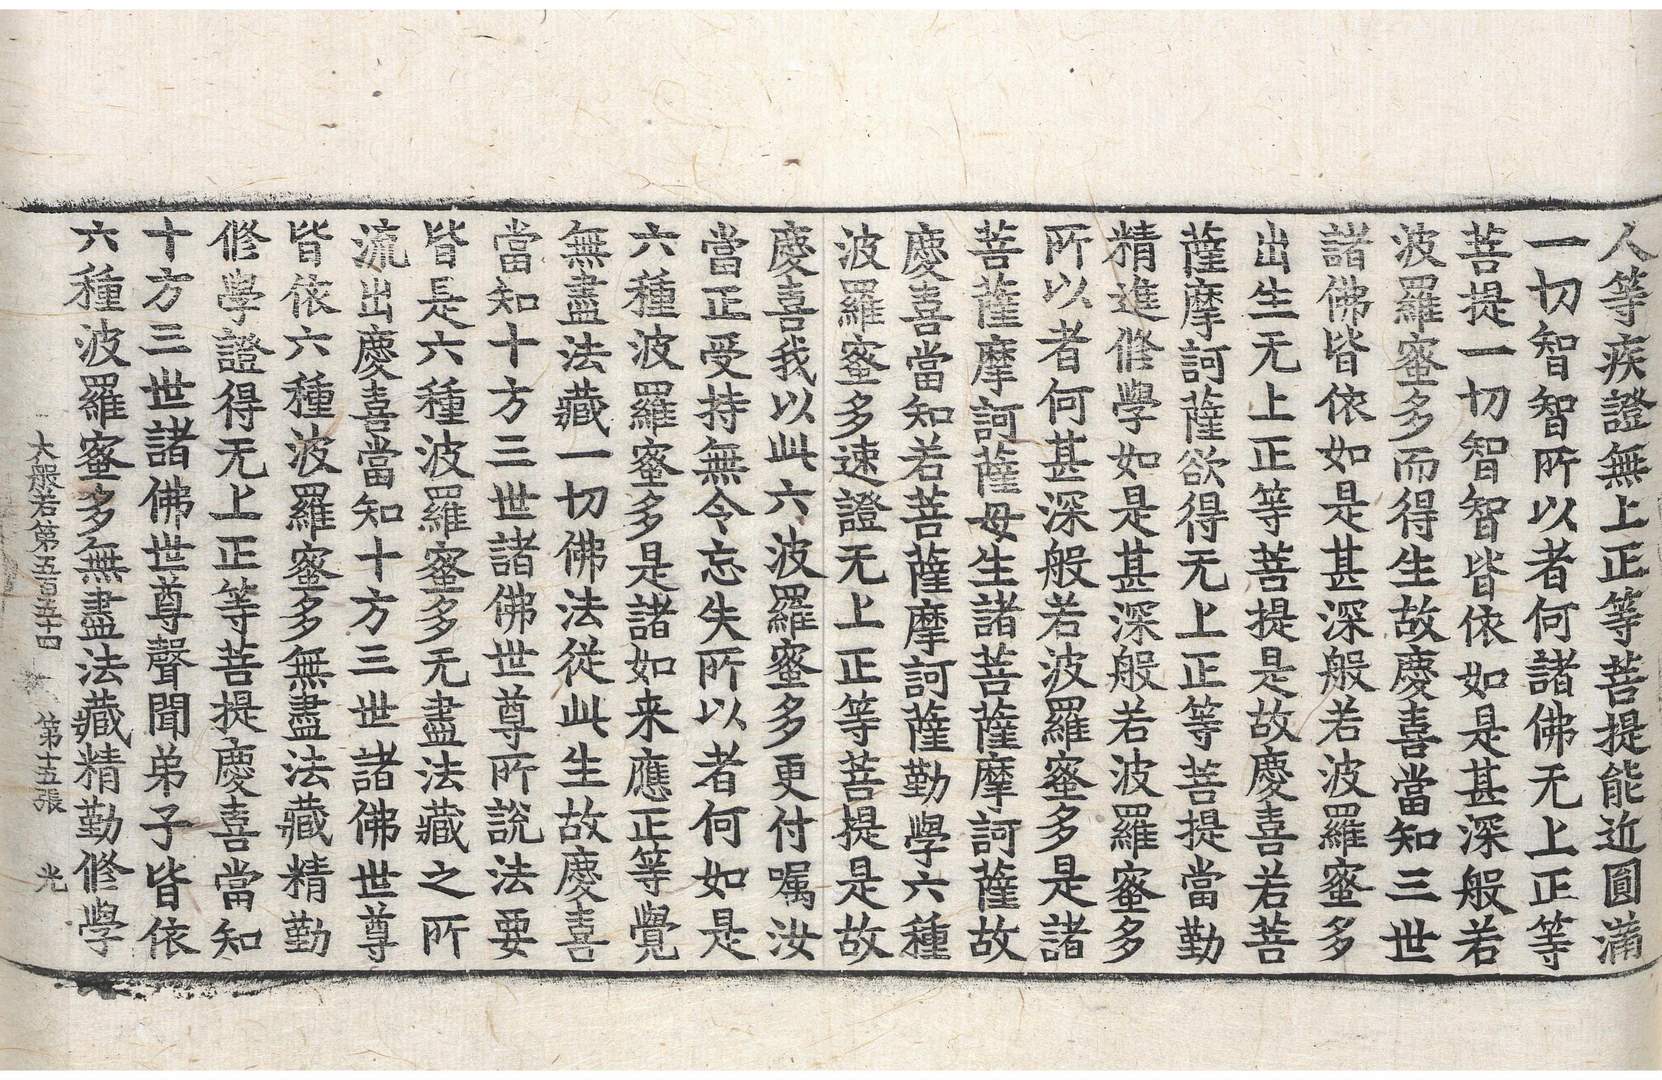 人等疾證無上正等菩提能近圓滿
一切智智所以者何諸佛无上正等
菩提一切智智皆依如是甚深般若
波羅蜜多而得生故慶喜當知三世
諸佛皆依如是甚深般若波羅蜜多
出生无上正等菩提是故慶喜若菩
薩摩訶薩欲得无上正等菩提當勤
精進修學如是甚深般若波羅蜜多
所以者何甚深般若波羅蜜多是諸
菩薩摩訶薩母生諸菩薩摩訶薩故
慶喜當知若菩薩摩訶薩勤學六種
波羅蜜多速證无上正等菩提是故
慶喜我以此六波羅蜜多更付囑汝
當正受持無令忘失所以者何如是
六種波羅蜜多是諸如来應正等覺
無盡法藏一切佛法從此生故慶喜
當知十方三世諸佛世尊所說法要
皆是六種波羅蜜多无盡法藏之所
流出慶喜當知十方三世諸佛世尊
皆依六種波羅蜜多無盡法藏精勤
修學證得无上正等菩提慶喜當知
十方三世諸佛世尊聲聞弟子皆依
六種波羅蜜多無盡法藏精勤修學
大般若第五百五十四 第十五張 光